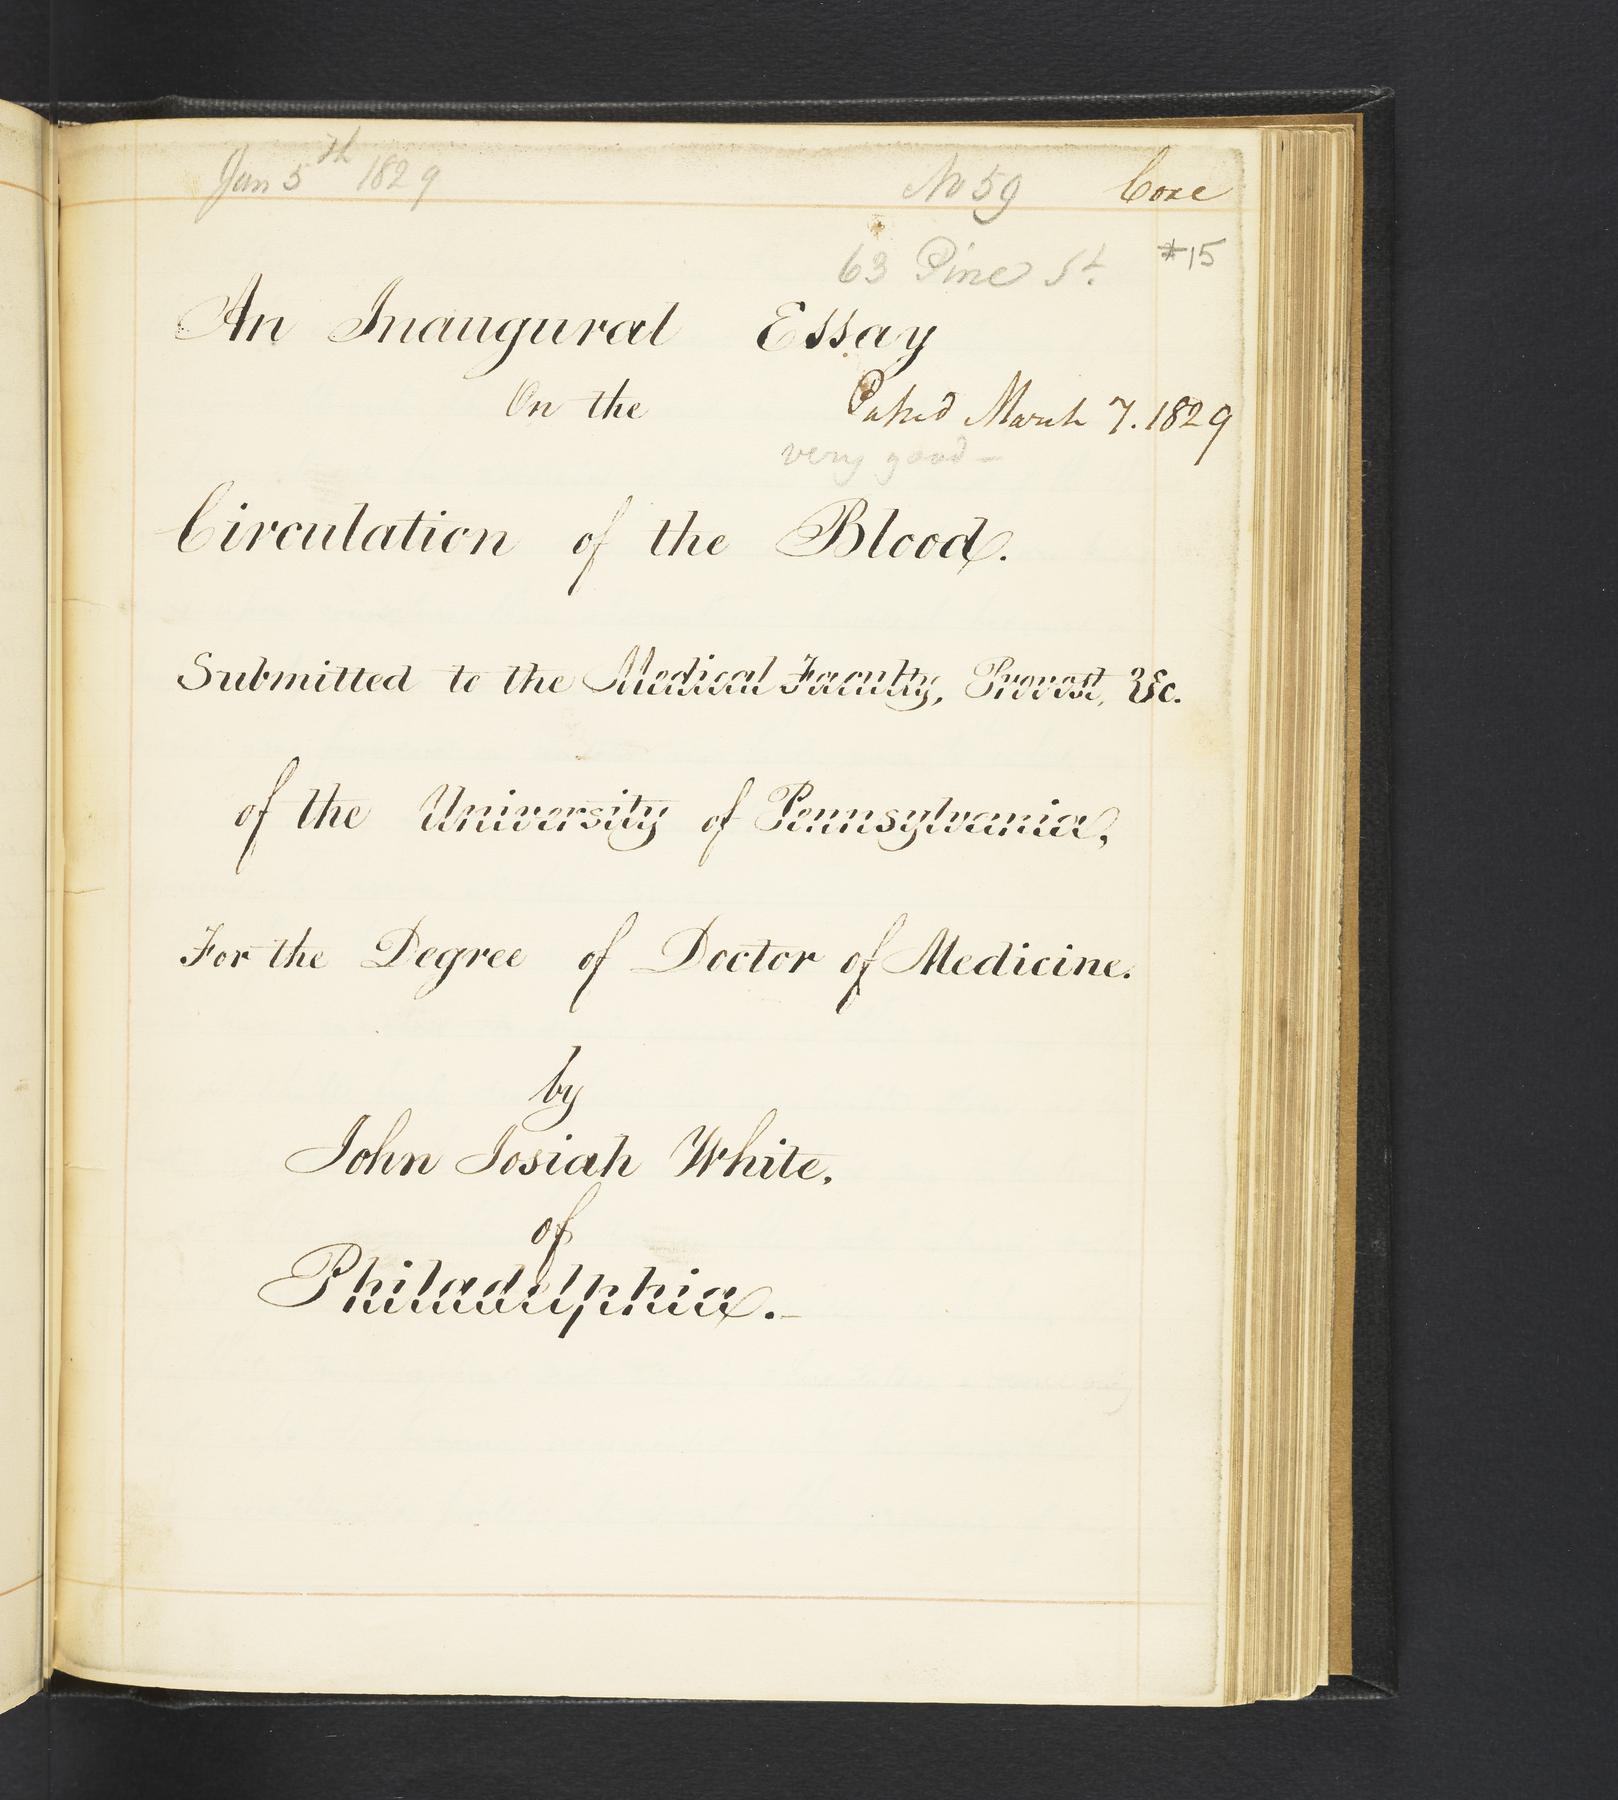 Jan 5th 1829 No 59 Coxe
63 Pine St. #15
An Inaugural Essay
On the Passed March 7. 1829
very good -
Circulation of the Blood.
Submitted to the Medical Faculty, Provost, &c.
of the University of Pennsylvania,
For the Degree of Doctor of Medicine.
by
John Josiah White.
of
Philadelphia.-